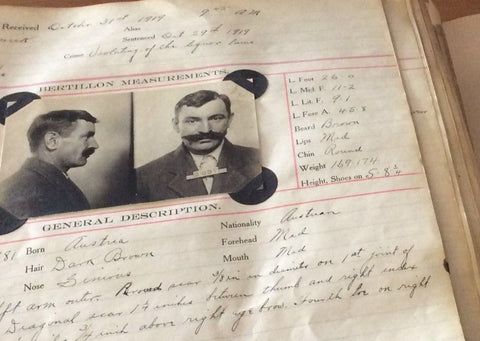 Received October 31st 1919 9 45 AM
Alias
Sentenced Oct 29th 1919
Crime Violating of the liquor laws
BERTILLON MEASUREMENTS.
L. Foot 26 0
L. Mid. F. 11-2
L. Lit. F. 9 1
L. Fore A. 45 8
Beard Brown
Lips Med
Chin Round
Weight 169 174
Height, Shoes on 5-8 1/4
GENERAL DESCRIPTION.
Born Austria Nationality Austrian
Hair Dark Brown Forehead Med
Nose Mouth Med
arm outer. scar in diameter on 1st joint of
Diagonal scar between thumb and right index
inch above right eyebrow. Fourth toe on right